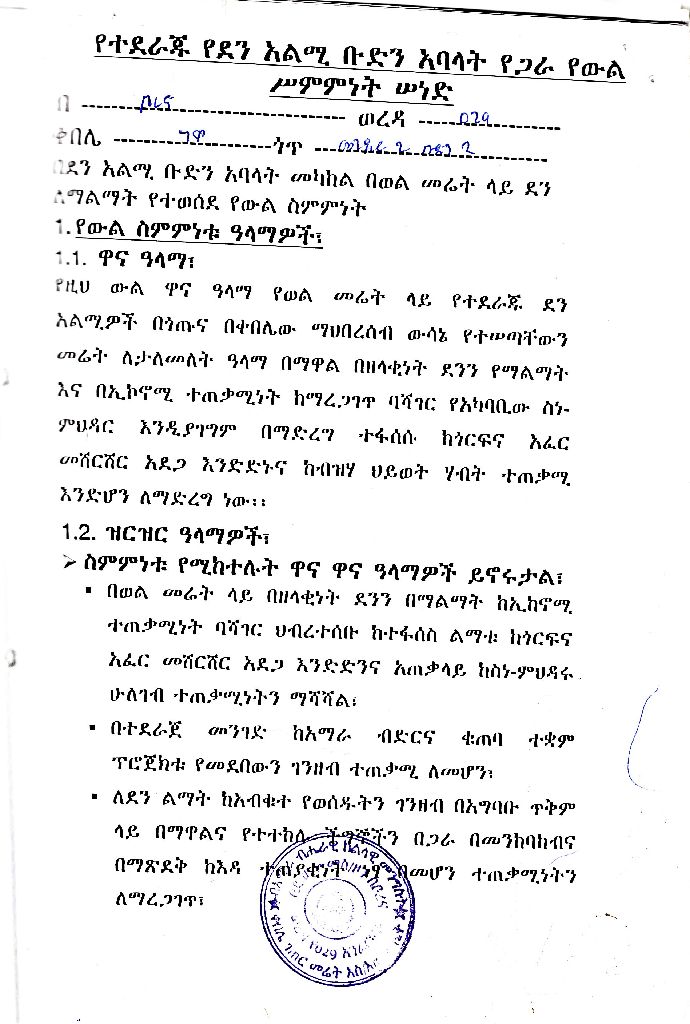 የተደራጁ የደን አልሚ ቡድን አባላት የጋራ የውል
ሥምምነት ሠነድ
በ ------ ቦረና ------ ወረዳ ------
ቀበሌ ------ ጎጥ ------
በደን አልሚ ቡድን አባላት መካከል በወል መሬት ላይ ደን
ለማልማት የተወሰደ የውል ስምምነት
1. የውል ስምምነቱ ዓላማዎች፣
1.1. ዋና ዓላማ፣
የዚህ ውል ዋና ዓላማ የወል መሬት ላይ የተደራጁ ደን
አልሚዎች በጎጡና በቀበሌው ማህበረሰብ ውሳኔ የተሠጣቸውን
መሬት ለታለመለት ዓላማ በማዋል በዘላቂነት ደንን የማልማት
እና በኢኮኖሚ ተጠቃሚነት ከማረጋገጥ ባሻገር የአካባቢው ስነ-
ምህዳር እንዲያገግም በማድረግ ተፋሰሱ ከጎርፍና አፈር
መሸርሸር አደጋ እንድድኑና ከብዝሃ ህይወት ሃብት ተጠቃሚ
እንድሆን ለማድረግ ነው፡፡
1.2. ዝርዝር ዓላማዎች፣
➢ ስምምነቱ የሚከተሉት ዋና ዋና ዓላማዎች ይኖሩታል፣
▪ በወል መሬት ላይ በዘላቂነት ደንን በማልማት ከኢኮኖሚ
ተጠቃሚነት ባሻገር ህብረተሰቡ ከተፋሰስ ልማቱ ከጎርፍና
አፈር መሸርሸር አደጋ እንድድንና አጠቃላይ ከስነ-ምህዳሩ
ሁለገብ ተጠቃሚነትን ማሻሻል፣
▪ በተደራጀ መንገድ ከአማራ ብድርና ቁጠባ ተቋም
ፕሮጀክቱ የመደበውን ገንዘብ ተጠቃሚ ለመሆን፣
▪ ለደን ልማት ከአብቁተ የወሰዱትን ገንዘብ በአግባቡ ጥቅም
ላይ በማዋልና የተተከሉ ችግኞችን በጋራ በመንከባከብና
በማጽደቅ ከእዳ ተጠያቂነት ነፃ በመሆን ተጠቃሚነትን
ለማረጋገጥ፣